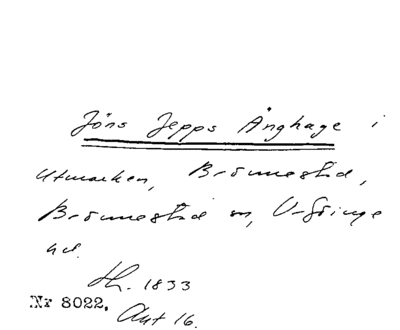 Jöns Jepps Änghage i
utmarken, Brönnestad,
Brönnestad sn, V. Göinge
hd.
1833
Nr 8022. Akt 16.